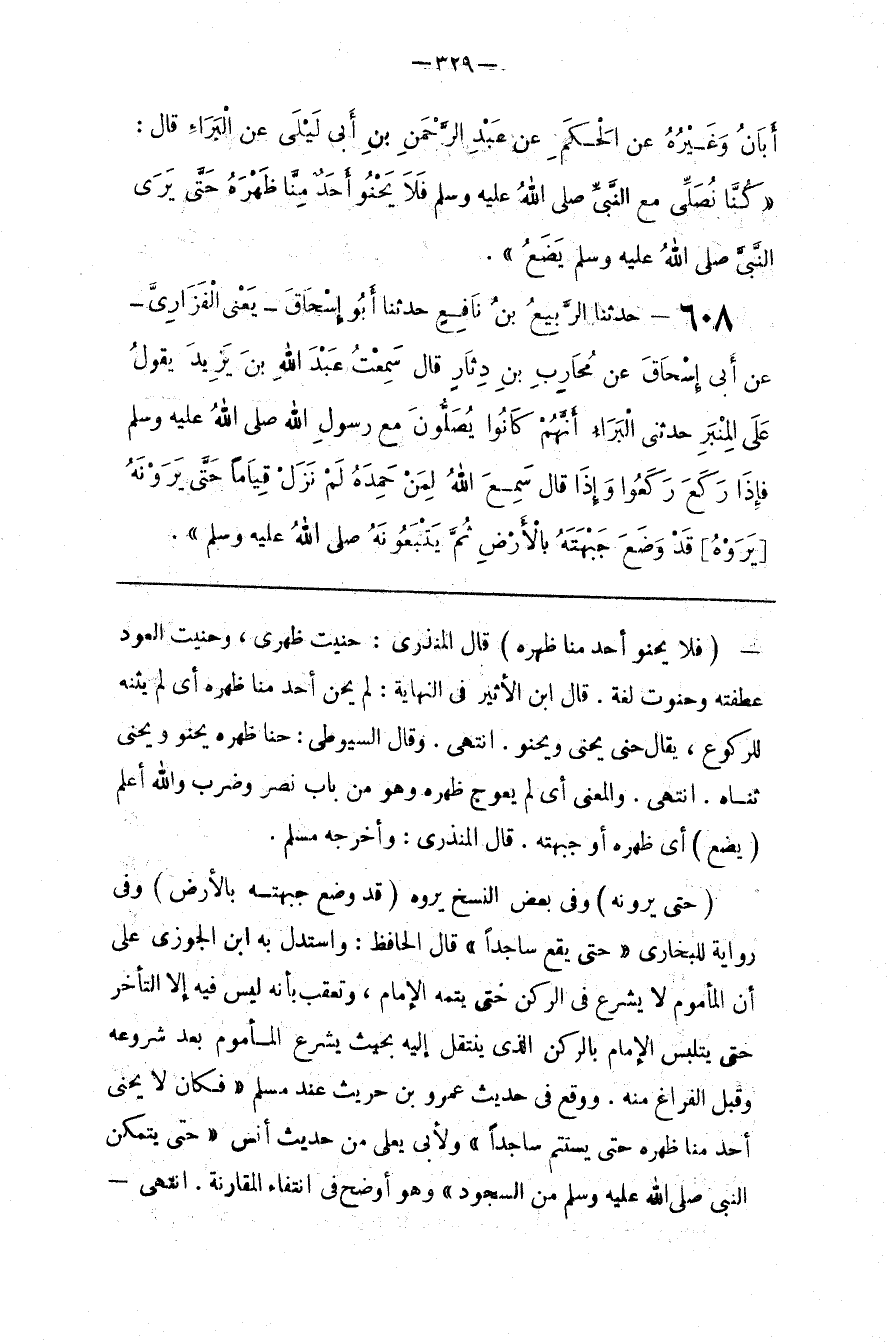 — ٣٢٩ —
أَبَانُ وَغَيْرُهُ عن الْحَكَمِ عن عَبْدِ الرَّحْمَنِ بنِ أَبى لَيْلَى عن الْبَرَاءِ قال :
« كُنَّا نُصَلِّى مع النَّبىِّ صلى اللهُ عليه وسلم فَلَا يَحْنُو أَحَدٌ مِنَّا ظَهْرَهُ حَتَّى يَرَى
النَّبىَّ صلى اللهُ عليه وسلم يَضَعُ » .
٦٠٨ — حدثنا الرَّبِيعُ بنُ نَافِعٍ حدثنا أَبُو إِسْحَاقَ - يَعْنى الْفَزَارِىَّ -
عن أَبى إِسْحَاقَ عن مُحَارِبِ بنِ دِثَارٍ قال سَمِعْتُ عَبْدَ اللهِ بنَ يَزِيدَ يقولُ
عَلَى الْمِنْبَرِ حدثنى الْبَرَاءِ أَنَّهُمْ كَانُوا يُصَلُّونَ مع رسولِ اللهِ صلى اللهُ عليه وسلم
فإِذَا رَكَعَ رَكَعُوا وَإِذَا قال سَمِعَ اللهُ لِمَنْ حَمِدَهُ لَمْ نَزَلْ قِيَاماً حَتَّى يَرَوْنَهُ
[يَرَوْهُ] قَدْ وَضَعَ جَبْهَتَهُ بالْأَرْضِ ثُمَّ يَتْبَعُونَهُ صلى اللهُ عليه وسلم » .
— ( فلا يحنو أحد منا ظهره ) قال المنذرى : حنيت ظهرى ، وحنيت العود
عطفته وحنوت لغة . قال ابن الأثير فى النهاية : لم يحن أحد منا ظهره أى لم يثنه
للركوع ، يقال حنى يحنى ويحنو . انتهى . وقال السيوطى : حنا ظهره يحنو ويحنى
ثناه . انتهى . والمعنى أى لم يعوج ظهره وهو من باب نصر وضرب والله أعلم
( يضع ) أى ظهره أو جبهته . قال المنذرى : وأخرجه مسلم .
( حتى يرونه ) وفى بعض النسخ يروه ( قد وضع جبهته بالأرض ) وفى
رواية للبخارى « حتى يقع ساجداً » قال الحافظ : واستدل به ابن الجوزى على
أن المأموم لا يشرع فى الركن حتى يتمه الإمام ، وتعقب بأنه ليس فيه إلا التأخر
حتى يتلبس الإمام بالركن الذى ينتقل إليه بحيث يشرع المأموم بعد شروعه
وقبل الفراغ منه . ووقع فى حديث عمرو بن حريث عند مسلم « فكان لا يحنى
أحد منا ظهره حتى يستتم ساجداً » ولأبى يعلى من حديث أنس « حتى يتمكن
النبى صلى الله عليه وسلم من السجود » وهو أوضح فى انتفاء المقارنة . انتهى —